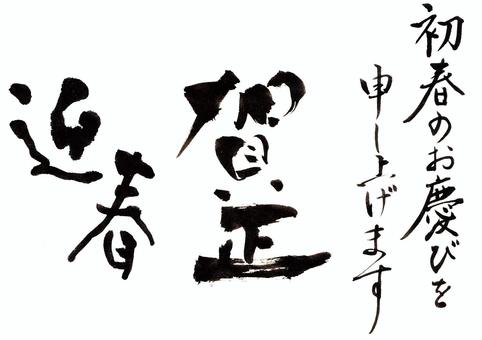 初春のお慶びを
申し上げます
賀正
迎春